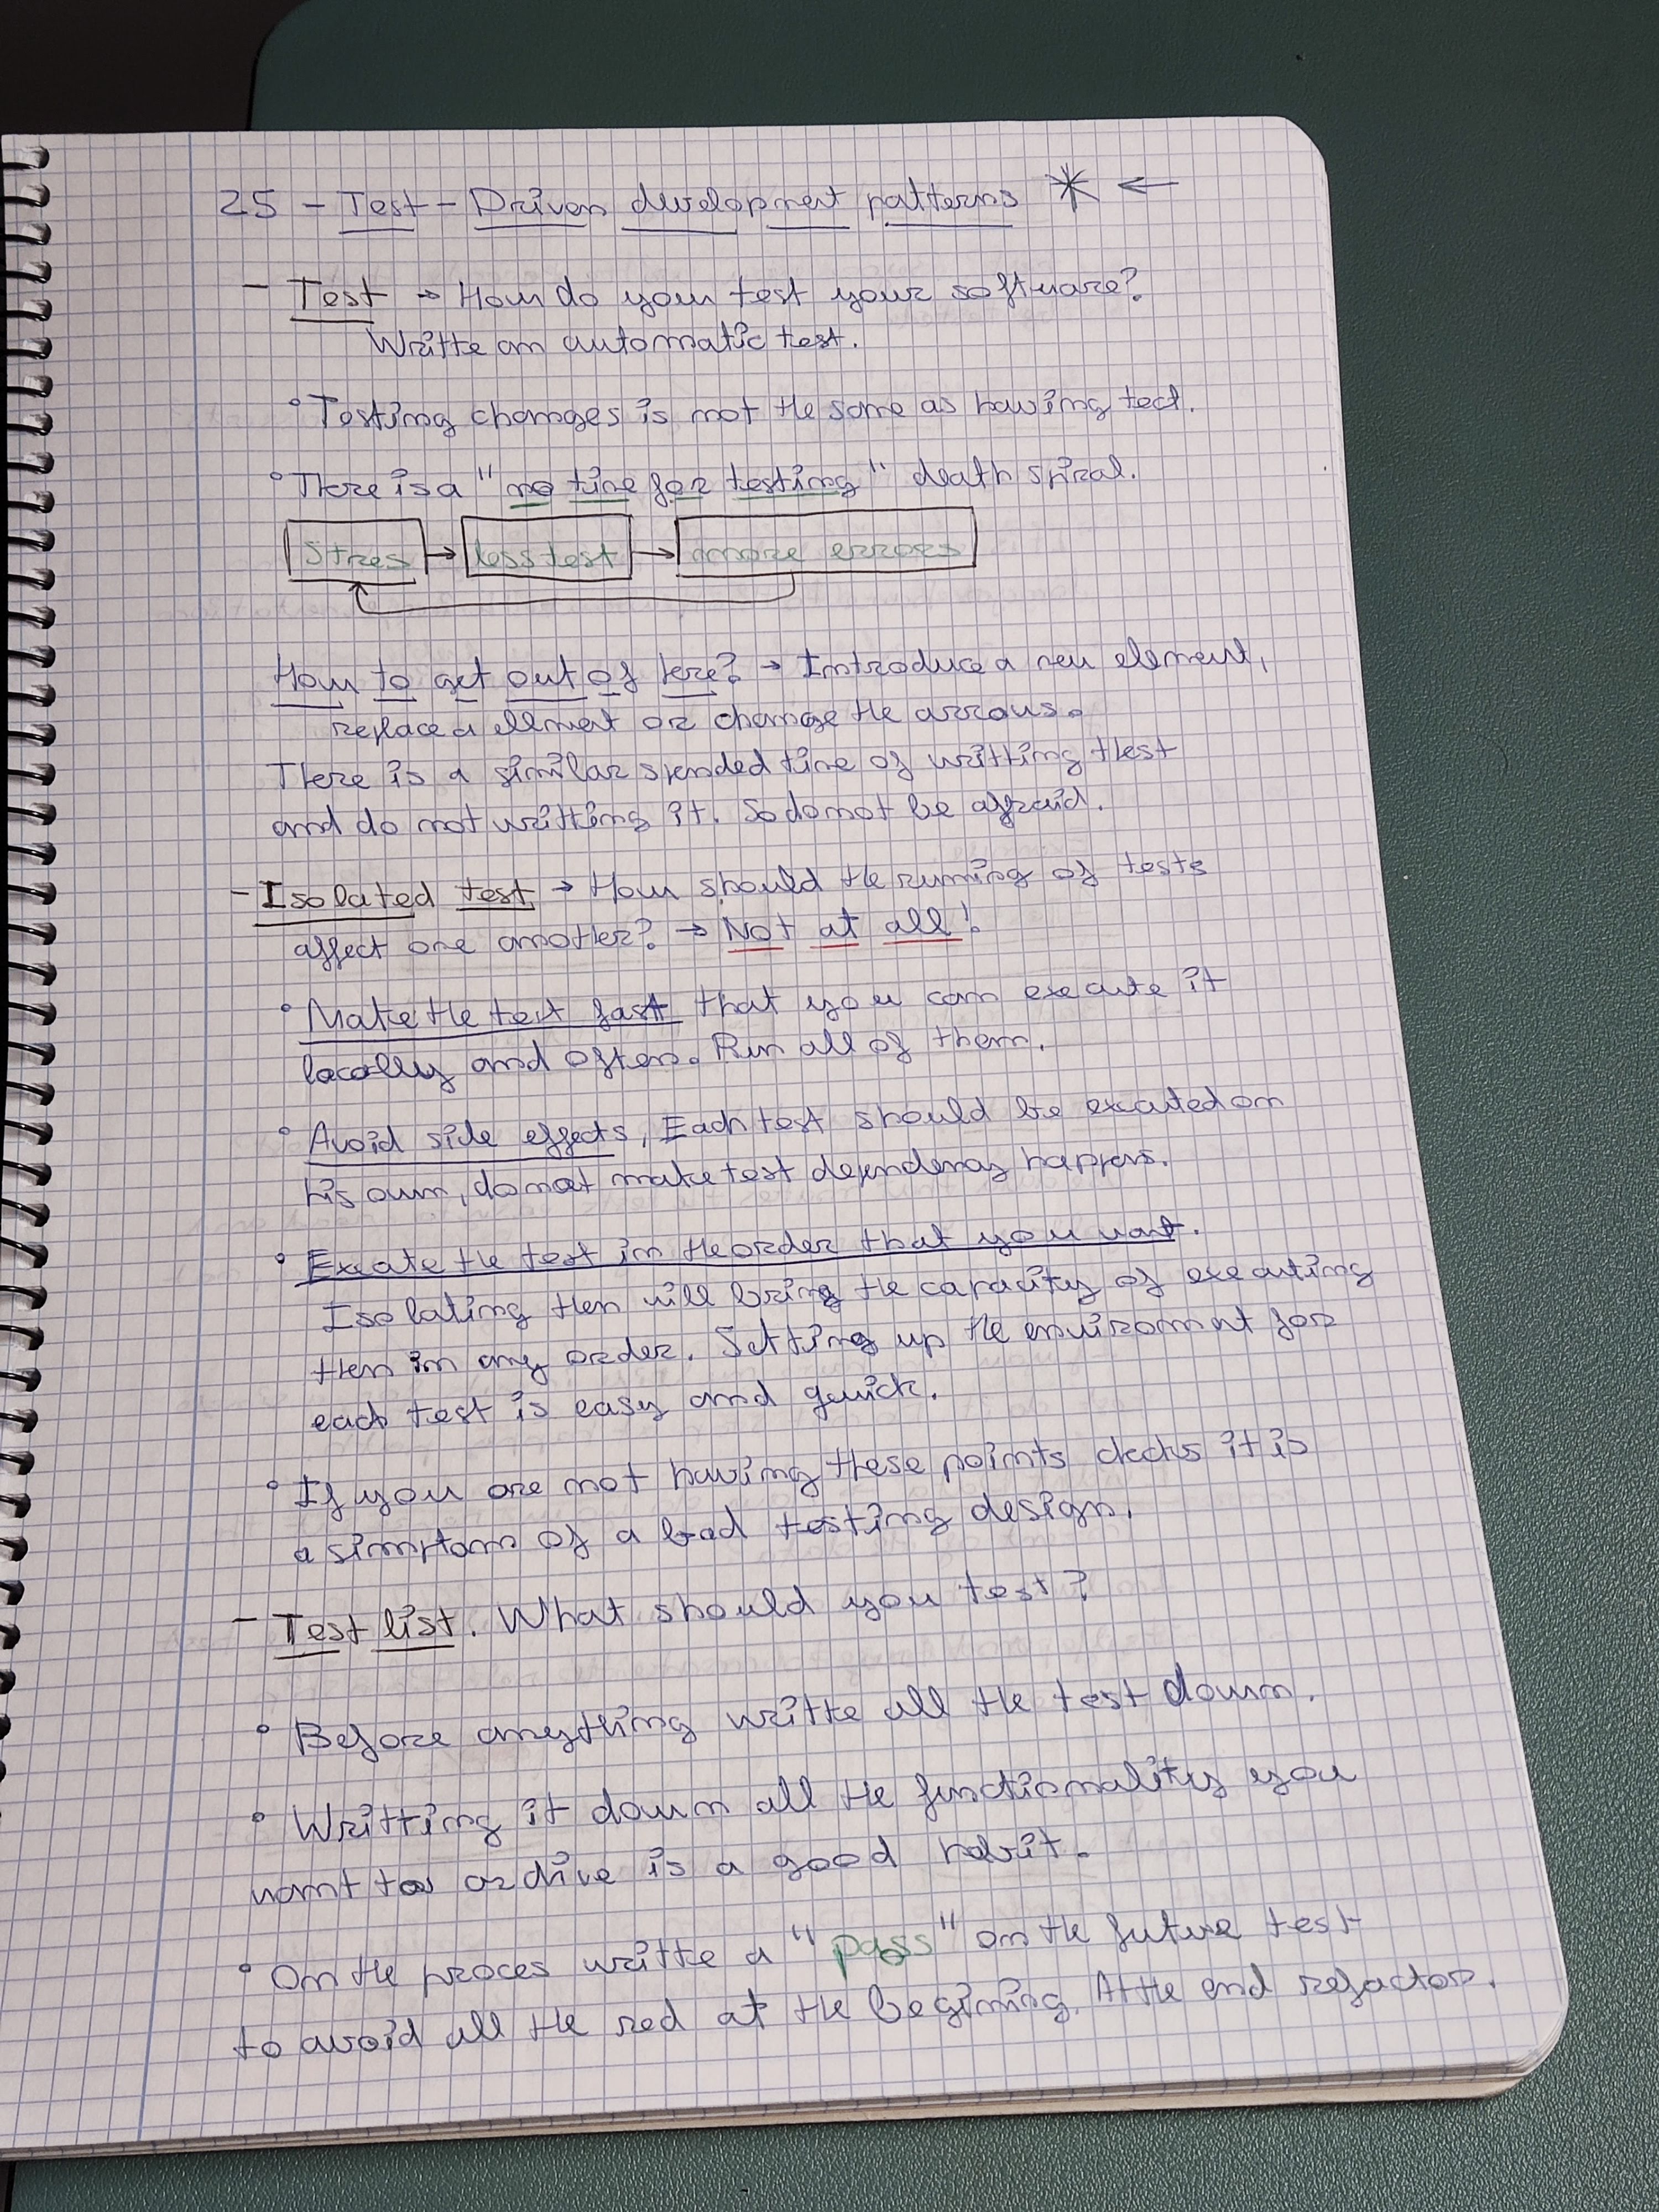 25 - Test - Driven development patterns * ←
- Test → How do you test your software?
Writte an automatic test.
° Testing changes is not the same as having test.
° There is a "no time for testing" death spiral.
Stres → less test → more errors
How to get out of here? → Introduce a new element,
replace a ellment or change the arrows.
There is a similar spended time of writting thest
and do not writting it. So do not be afraid.
- Isolated test → How should the runing of tests
affect one another? → Not at all!
° Make the test fast that you can execute it
locally and often. Run all of them.
° Avoid side effects, Each test should be executed on
his own, do not make test dependency happens.
° Execute the test in the order that you want.
Isolating then will bring the capacity of executing
then in any order. Setting up the enviroment for
each test is easy and quick.
° If you are not having these points checks it is
a simptom of a bad testing design.
- Test list. What should you test?
° Before anything writte all the test down.
° Writting it down all the functionality you
want to ardive is a good habit.
° On the proces writte a "pass" on the future test
to avoid all the red at the begining. At the end refactor.